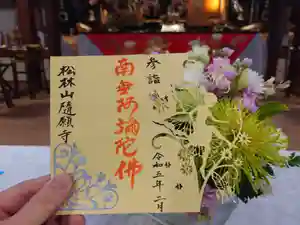 参詣
令和五年二月
南無阿弥陀佛
松林山随願寺